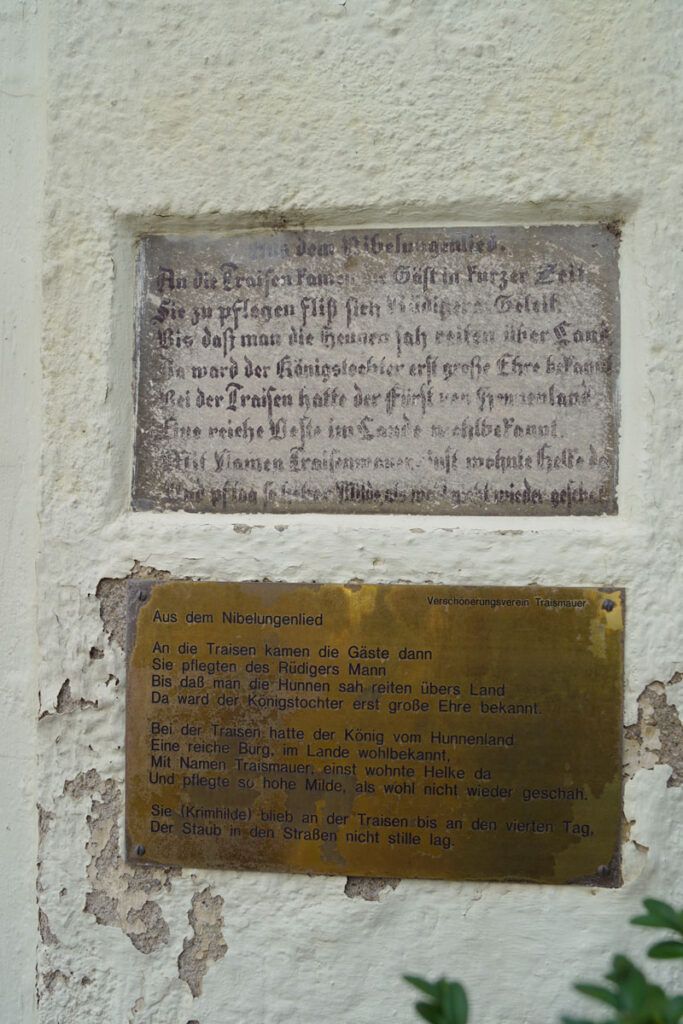 Aus dem Nibelungenlied.
An die Traisen kamen Gäst in kurzer Zeit
Sie zu pflegen fliß sich Rüdigers Geleit
Bis daß man die Heunen sah reiten über Land
Da ward der Königstochter erst große Ehre bekannt
Bei der Traisen hatte der Fürst von Heunenland
Eine reiche Veste im Lande wohlbekannt.
Mit Namen Traisenmauer, einst wohnte Helke da
Und pflag so hoher Milde, als wohl nicht wieder
Verschönerungsverein Traismauer
Aus dem Nibelungenlied
An die Traisen kamen die Gäste dann
Sie pflegten des Rüdigers Mann
Bis daß man die Hunnen sah reiten übers Land
Da ward der Königstochter erst große Ehre bekannt.
Bei der Traisen hatte der König vom Hunnenland
Eine reiche Burg, im Lande wohlbekannt,
Mit Namen Traismauer, einst wohnte Helke da
Und pflegte so hohe Milde, als wohl nicht wieder geschah.
Sie (Krimhilde) blieb an der Traisen bis an den vierten Tag,
Der Staub in den Straßen nicht stille lag.